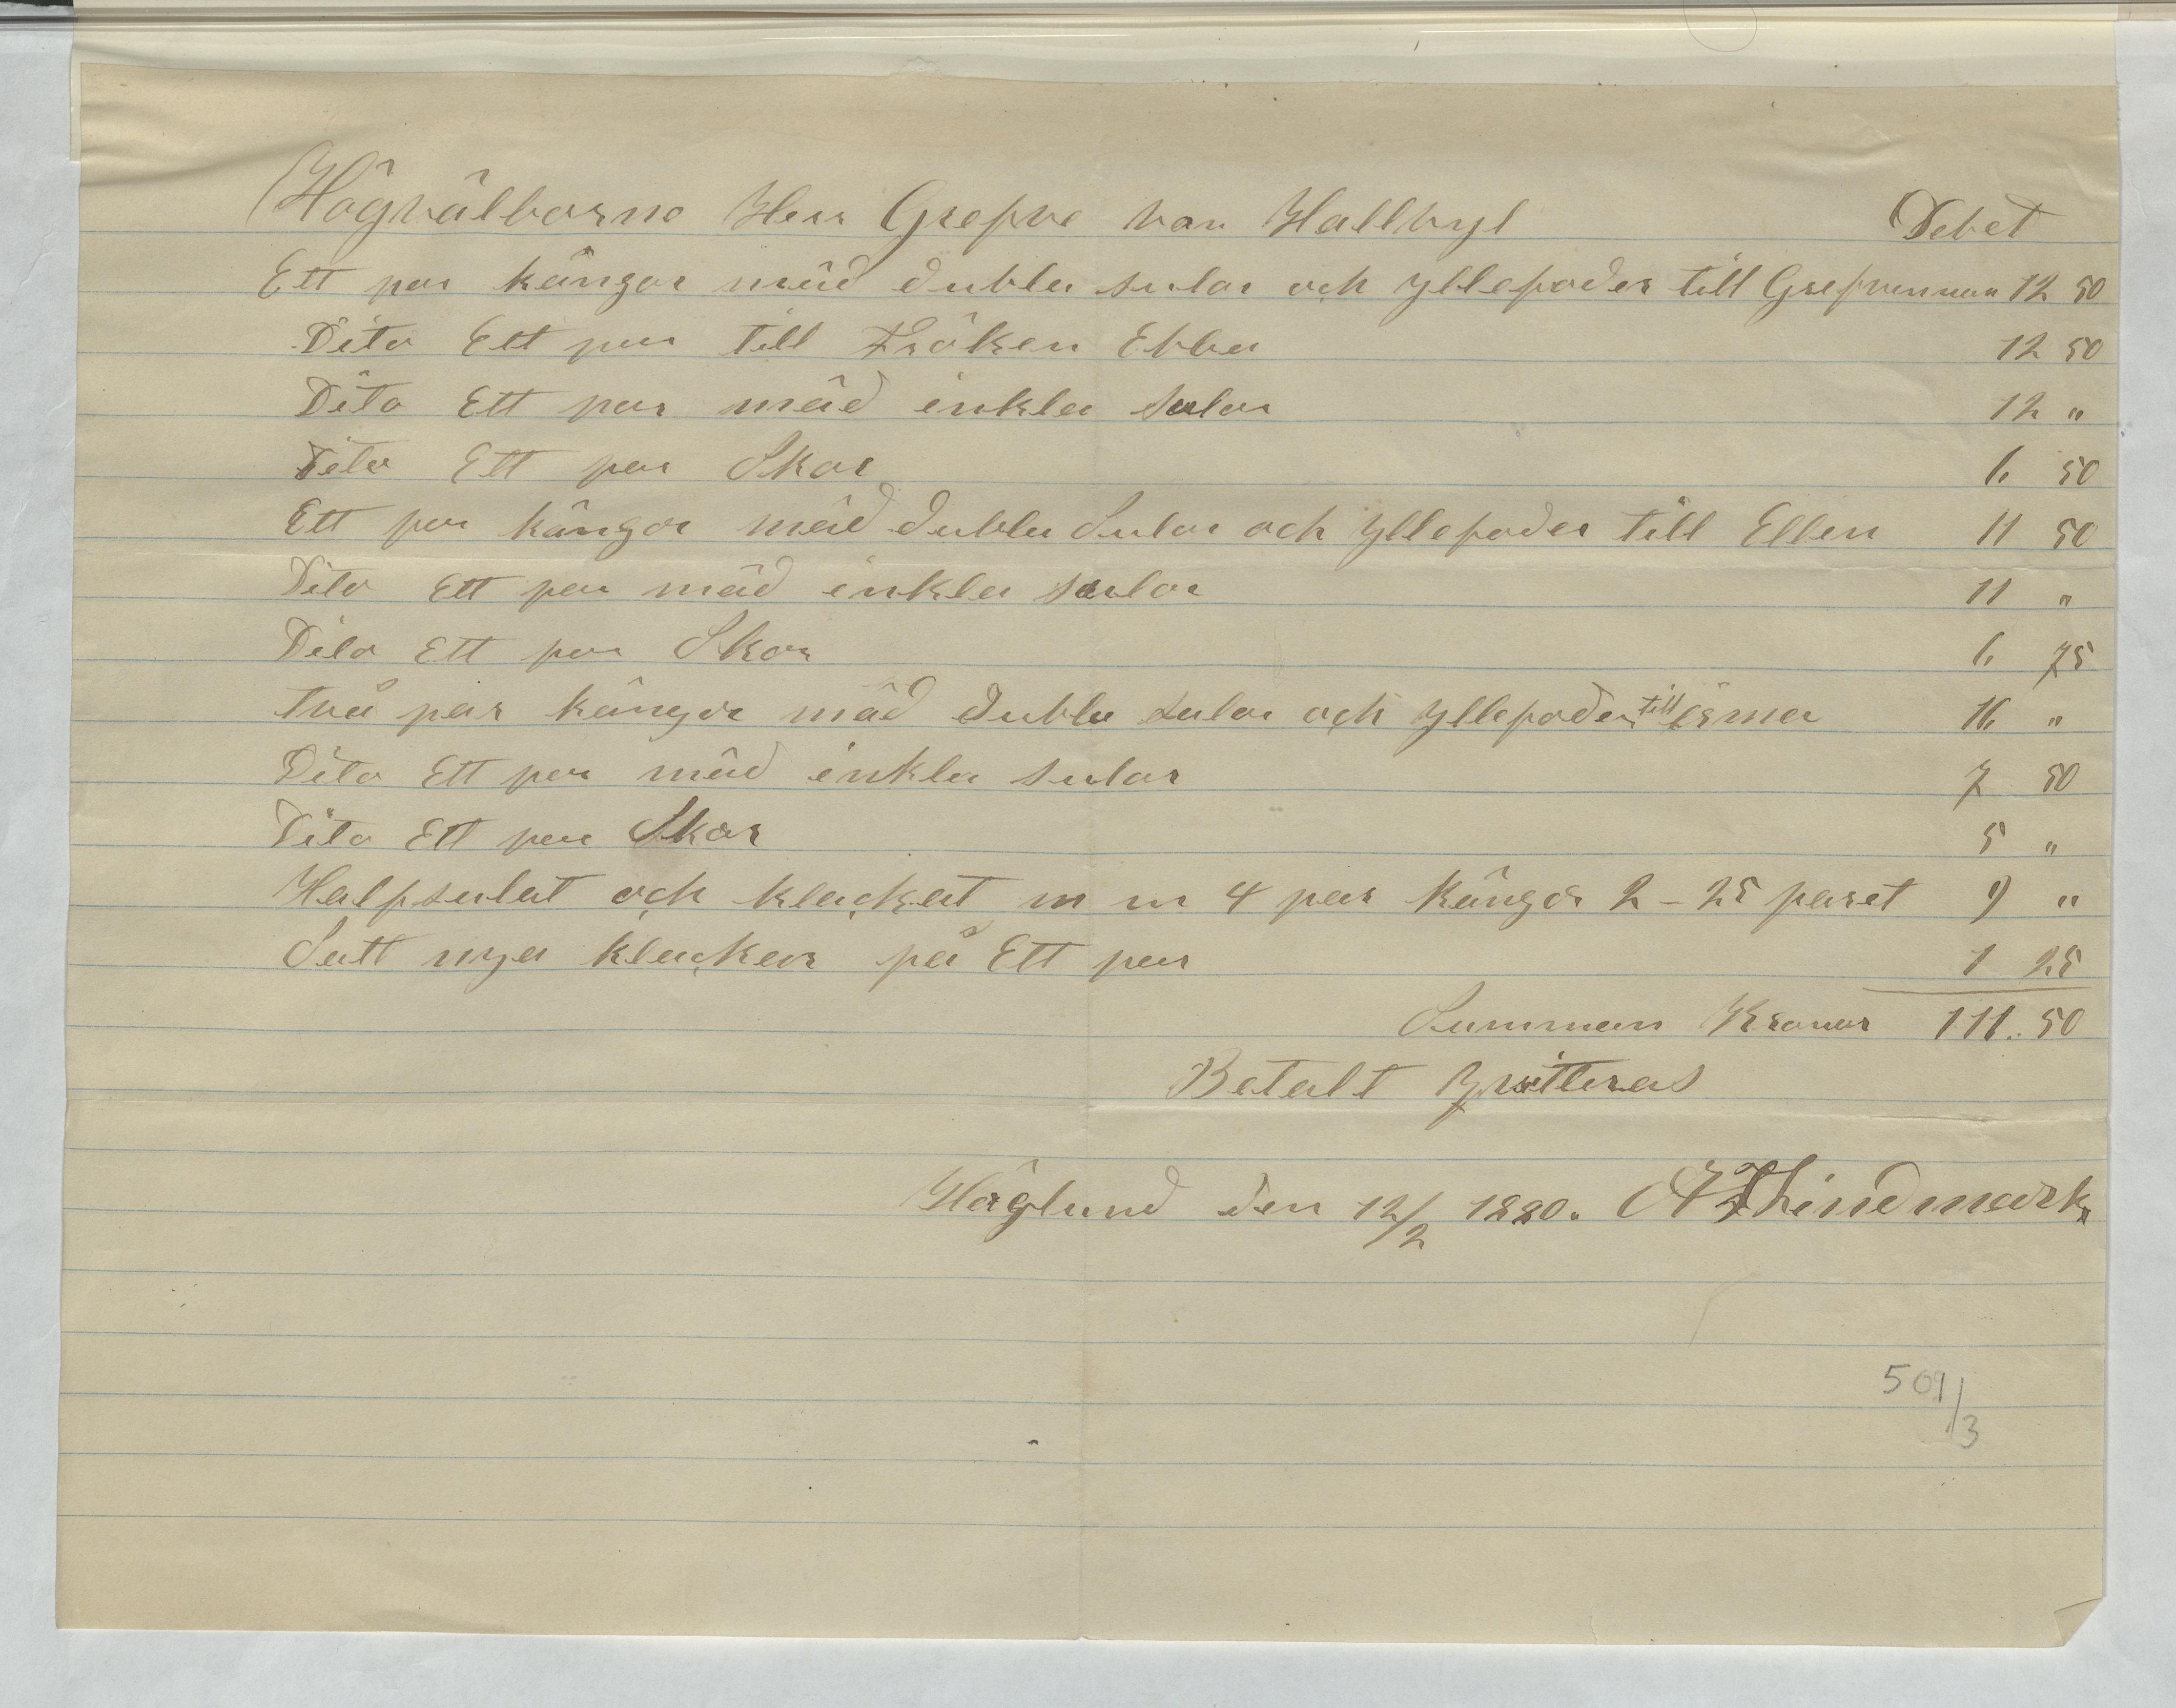 Högvälborne Herr Grefve von Hallwyl Debet
Ett par kängor mäd dubla sulor och yllefoder till Grefvinnan 12 50
Dito Ett par till Fröken Ebba 12 50
Dito Ett par mäd inkla sulor 12 "
Dito Ett par Skor 6 50
Ett par kängor mäd dubla Sulor och yllefoder till Ellen 11 50
Dito Ett par mäd inkla sulor 11 "
Dito Ett par Skor 6 75
två par kängor mäd dubla sulor och yllefoder till Erma 16 "
Dito Ett par mäd inkla sulor 7 50
Dito Ett par Skor 5 "
Halfsulat och klackat m m 4 par kängor 2-25 paret 9 "
Satt nya klackar på Ett par 1 25
Summan Kronor 111.50
Betalt qvitteras
Häglund den 12/2 1880. Lindmark
509/3